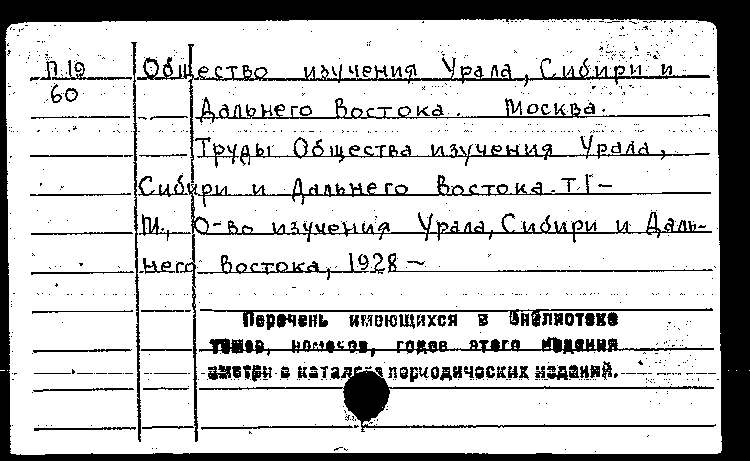 П.19 Общество изучения Урала, Сибири и
60
Дальнего Востока. Москва.
Труды Общества изучения Урала,
Сибири и Дальнего Востока. Т.I-
М., О-во изучения Урала, Сибири и Даль-
него Востока, 1928 -
Перечень имеющихся в библиотеке
томов, номеров, годов этого издания
смотри в каталоге периодических изданий.